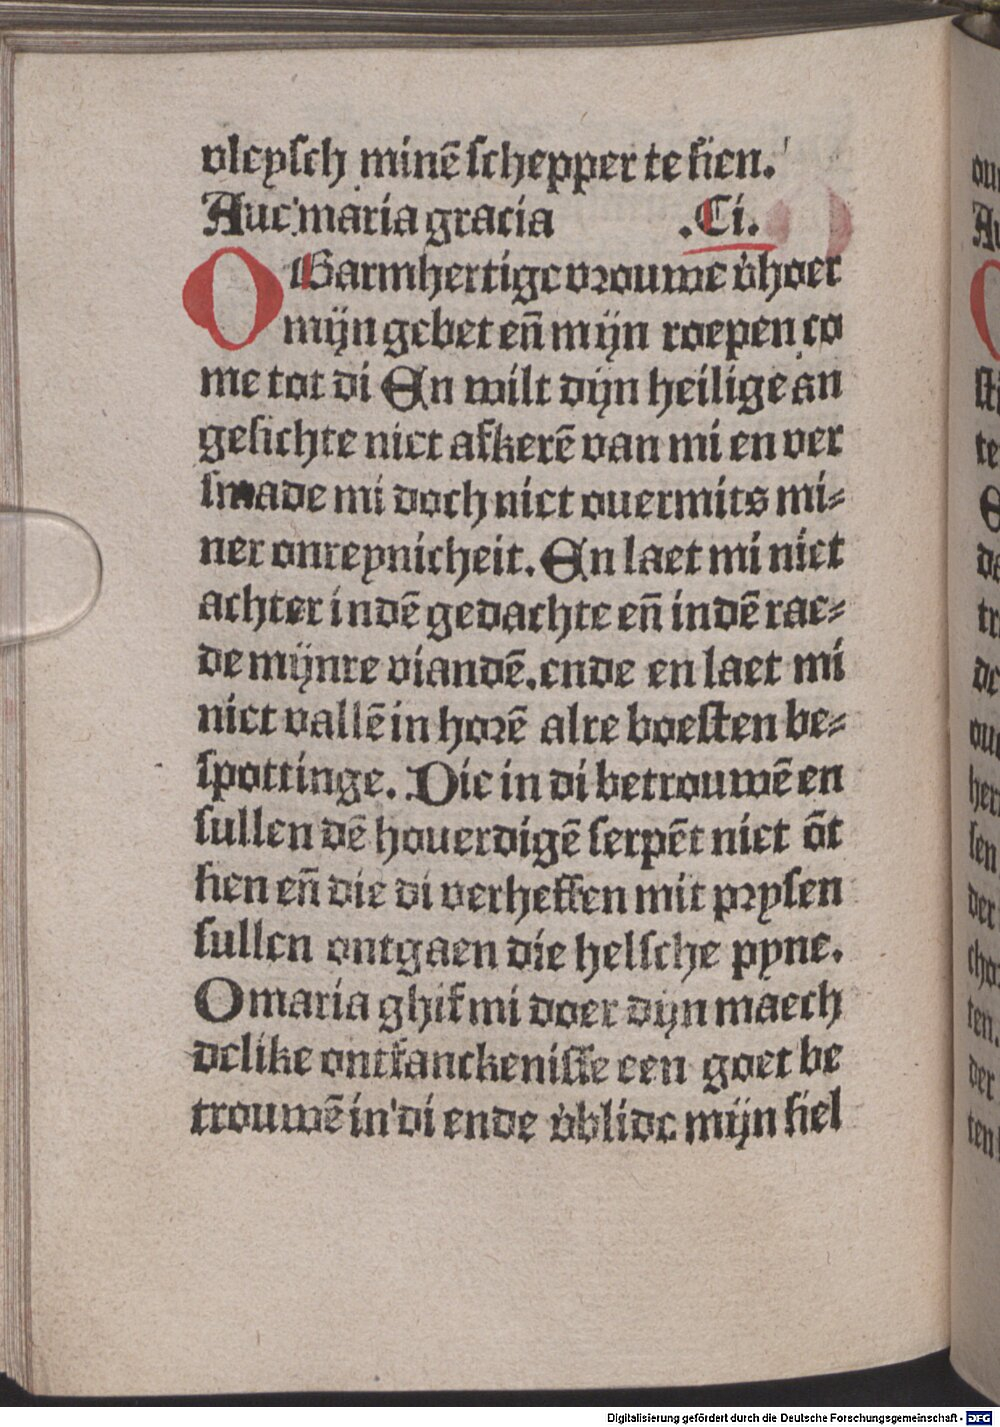 vleysch minē schepper te sien.
Aue maria gracia .Ci.
O Barmhertige vrouwe v̄hoer
mijn gebet en̄ mijn roepen co
me tot di En wilt dijn heilige an
gesichte niet afkerē van mi en ver
smade mi doch niet ouermits mi-
ner onreynicheit. En laet mi niet
achter in dē gedachte en̄ in dē rae-
de mijnre viandē. ende en laet mi
niet vallē in horē alre boesten be-
spottinge. Die in di betrouwē en
sullen dē houerdigē serpēt niet ōt
sien en̄ die di verheffen mit prysen
sullen ontgaen die helsche pyne.
O maria ghif mi doer dijn maech
delike ontfanckenisse een goet be
trouwē in di ende v̄blide mijn siel
Digitalisierung gefördert durch die Deutsche Forschungsgemeinschaft - DFG